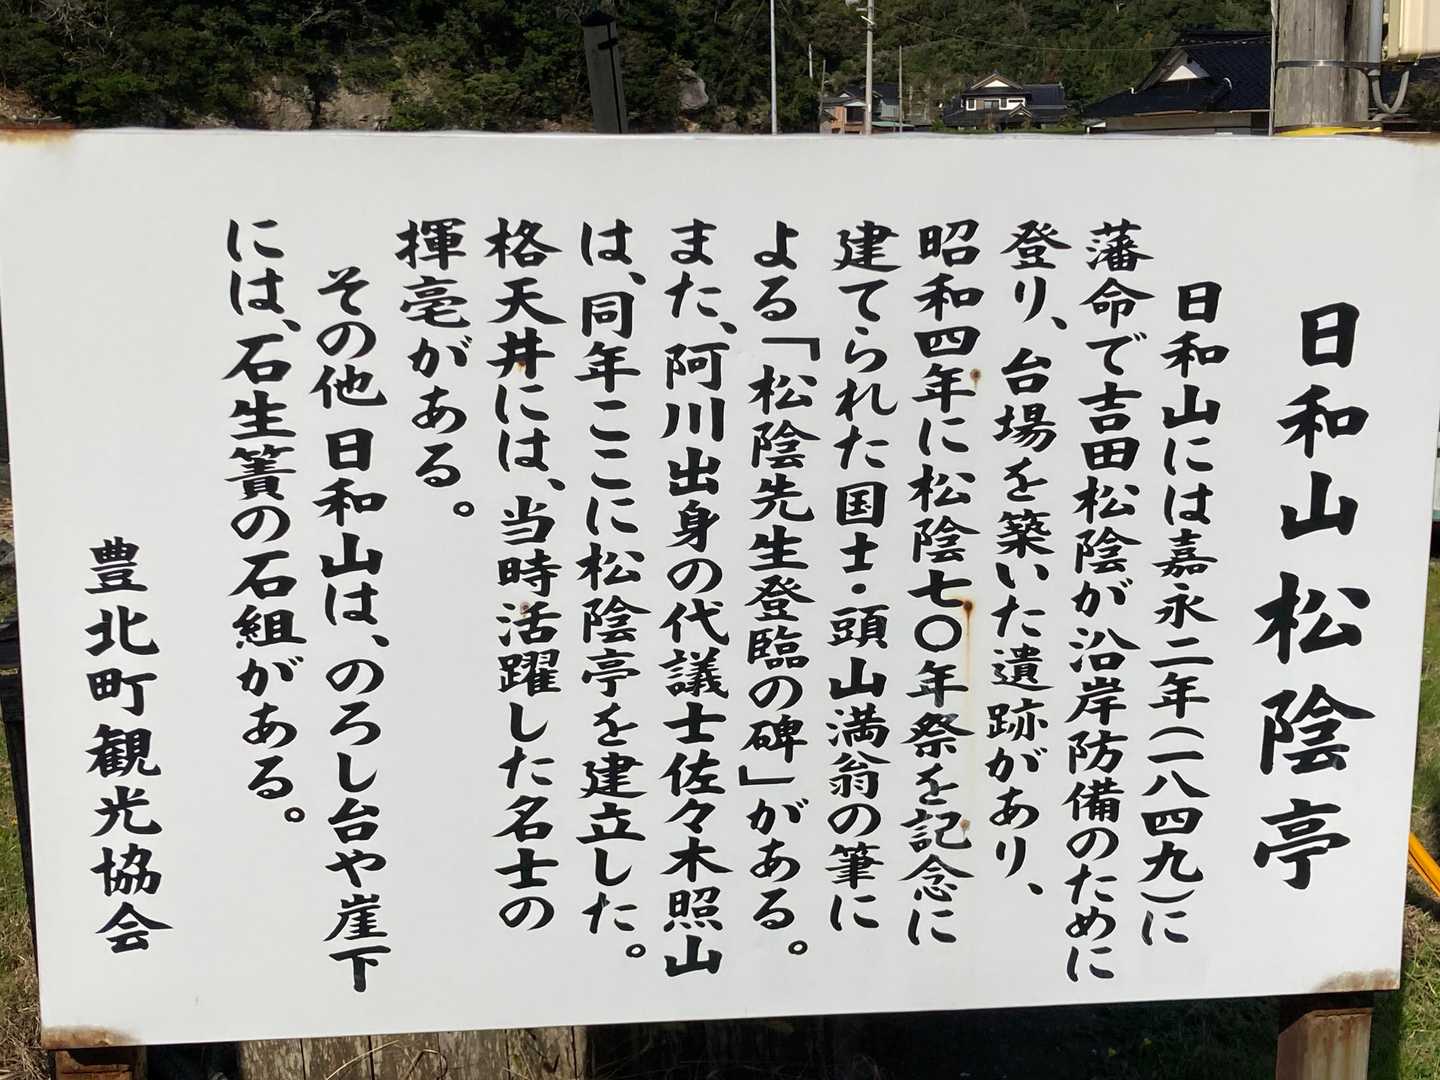 日和山松陰亭
日和山には嘉永二年(一八四九)に
藩命で吉田松陰が沿岸防備のために
登り、台場を築いた遺跡があり、
昭和四年に松陰七〇年祭を記念に
建てられた国士・頭山満翁の筆に
よる「松陰先生登臨の碑」がある。
また、阿川出身の代議士佐々木照山
は、同年ここに松陰亭を建立した。
格天井には、当時活躍した名士の
揮亳がある。
その他日和山は、のろし台や崖下
には、石生簀の石組がある。
豊北町観光協会